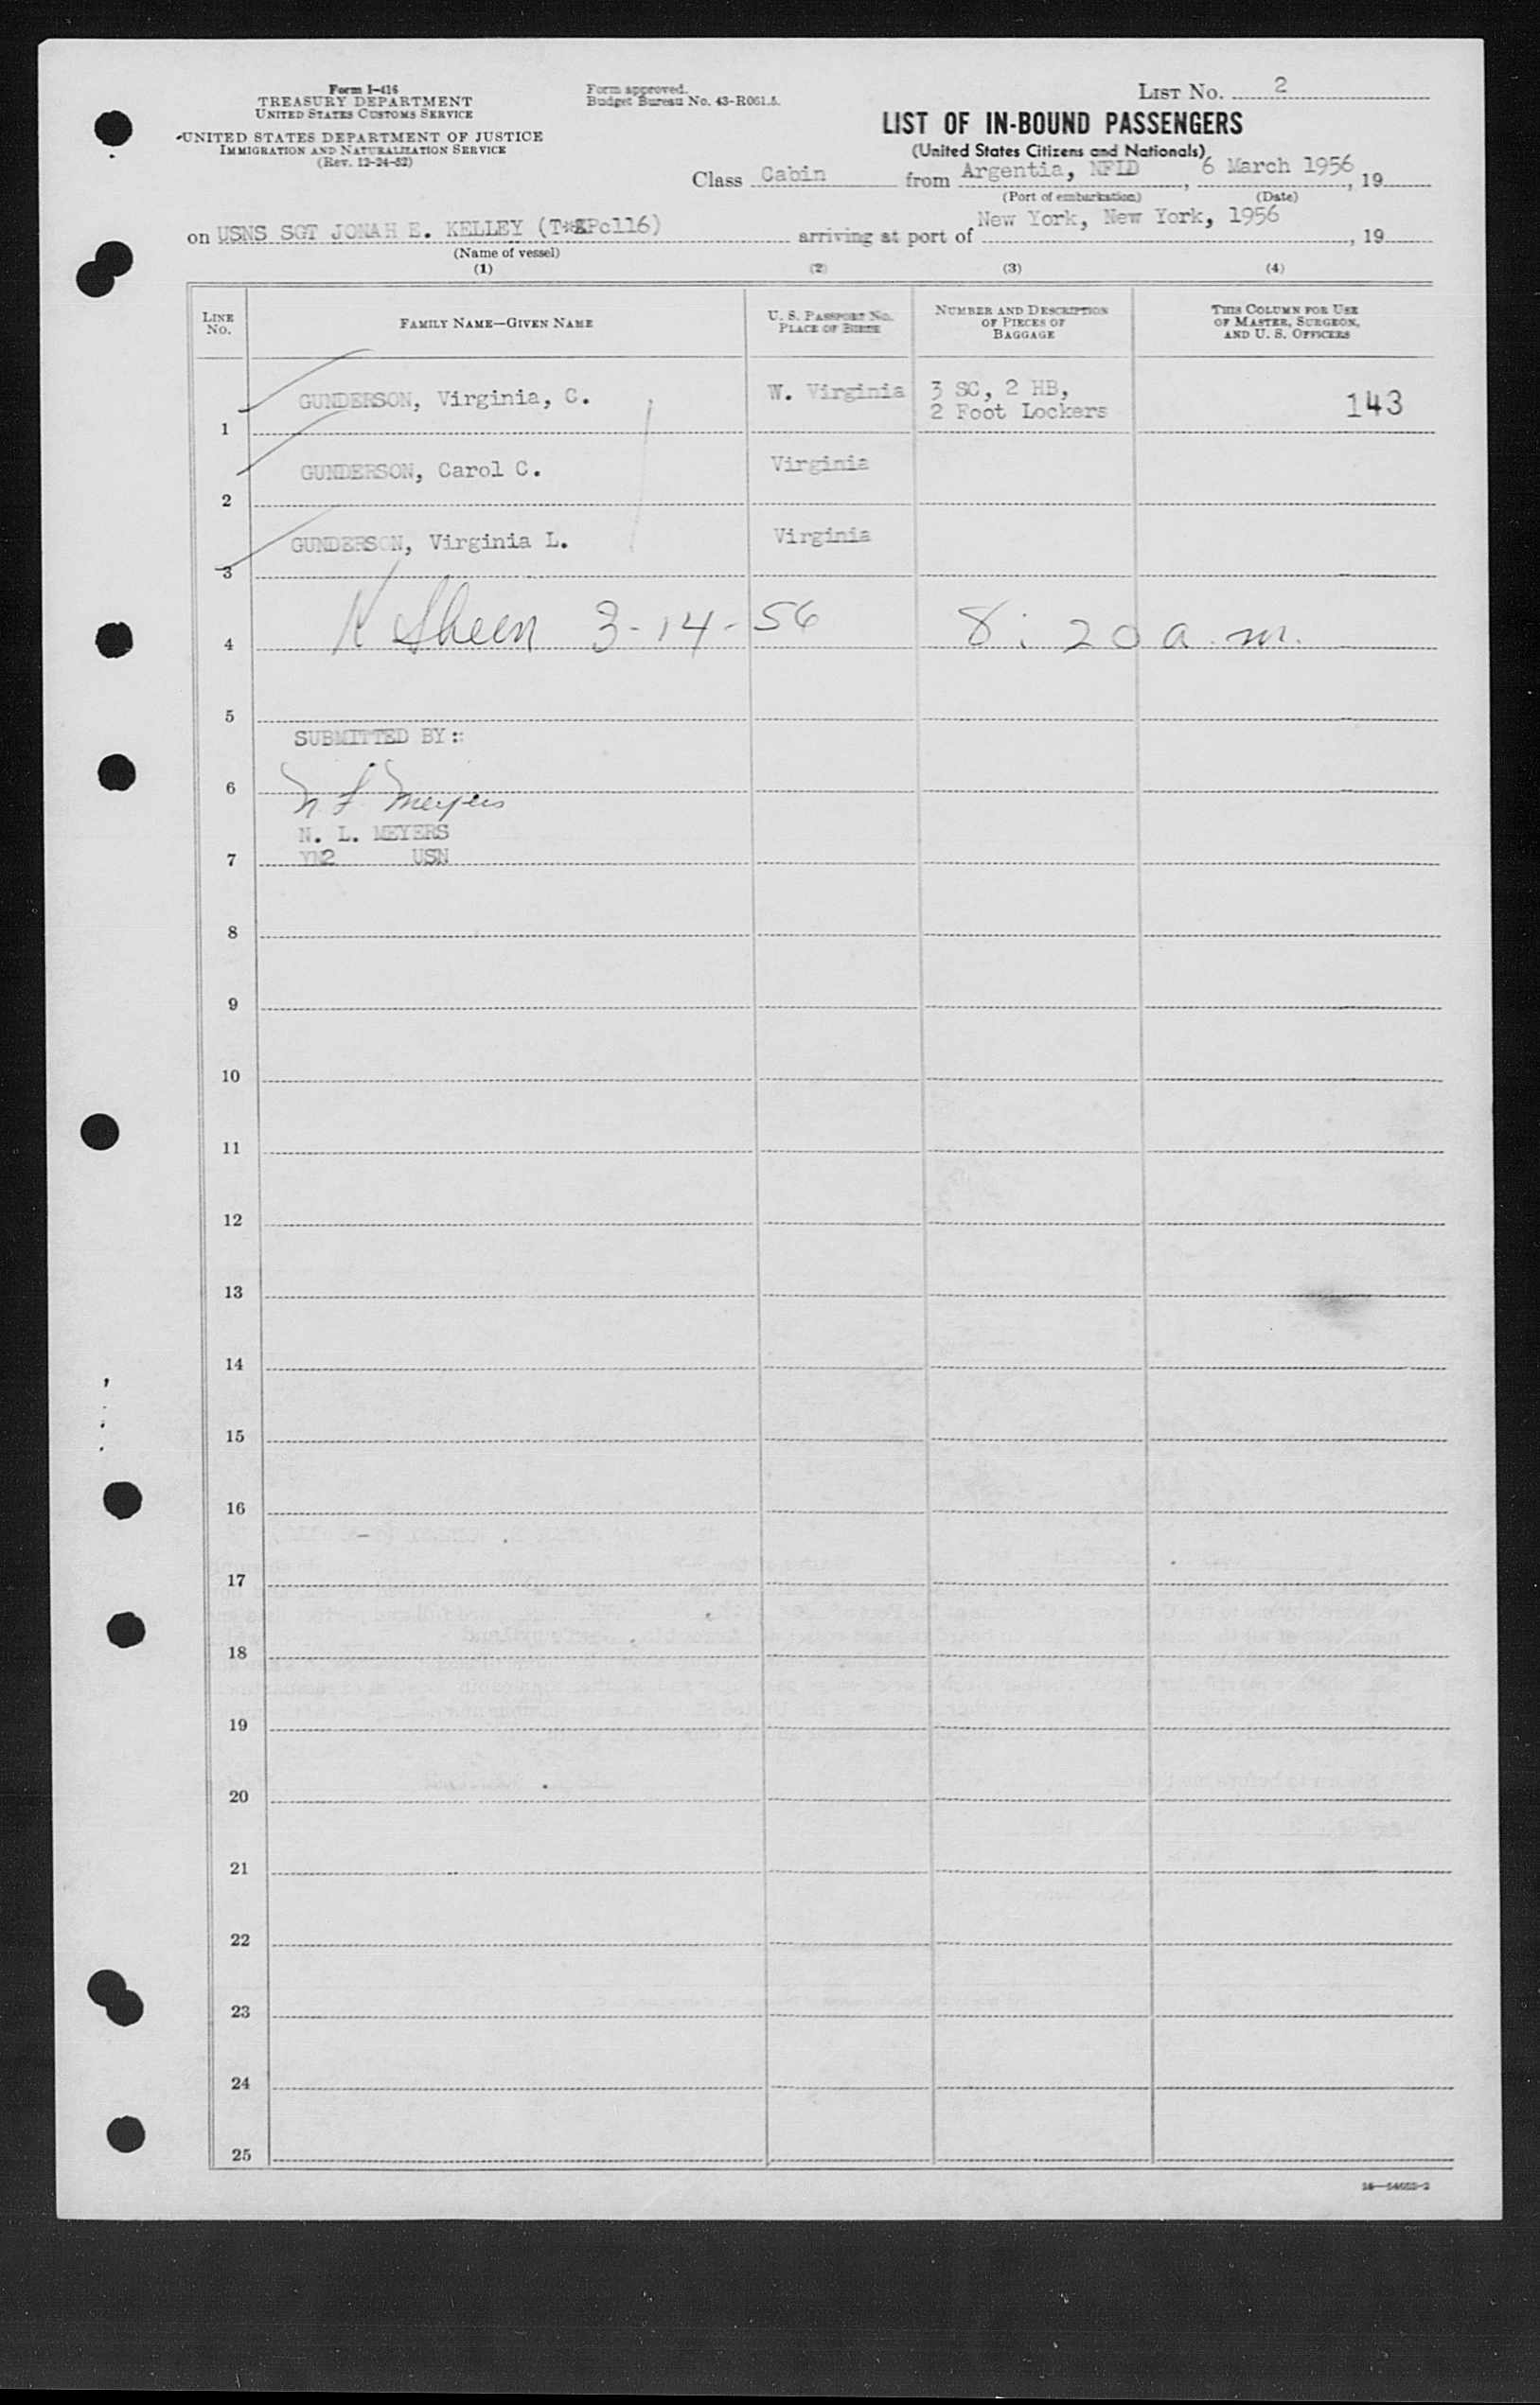 Form I-416
TREASURY DEPARTMENT
UNITED STATES CUSTOMS SERVICE
UNITED STATES DEPARTMENT OF JUSTICE
IMMIGRATION AND NATURALIZATION SERVICE
(Rev. 12-24-52)
Form approved.
Budget Bureau No. 43-R061.5.
LIST No. 2
LIST OF IN-BOUND PASSENGERS
(United States Citizens and Nationals)
Class Cabin from Argentia, NFLD, 6 March 1956, 19
(Port of embarkation) (Date)
on USNS SGT JONAH E. KELLEY (T-APc116) arriving at port of New York, New York, 1956, 19
(Name of vessel)
(1) (2) (3) (4)
LINE No. FAMILY NAME—GIVEN NAME U. S. PASSPORT No. PLACE OF BIRTH NUMBER AND DESCRIPTION OF PIECES OF BAGGAGE THIS COLUMN FOR USE OF MASTER, SURGEON, AND U. S. OFFICERS
1 GUNDERSON, Virginia, C. W. Virginia 3 SC, 2 HB, 2 Foot Lockers 143
2 GUNDERSON, Carol C. Virginia
3 GUNDERSON, Virginia L. Virginia
4 K Sheen 3-14-56 8:20 a.m.
5
SUBMITTED BY::
6 N L Meyers
N. L. MEYERS
7 YN2 USN
8
9
10
11
12
13
14
15
16
17
18
19
20
21
22
23
24
25